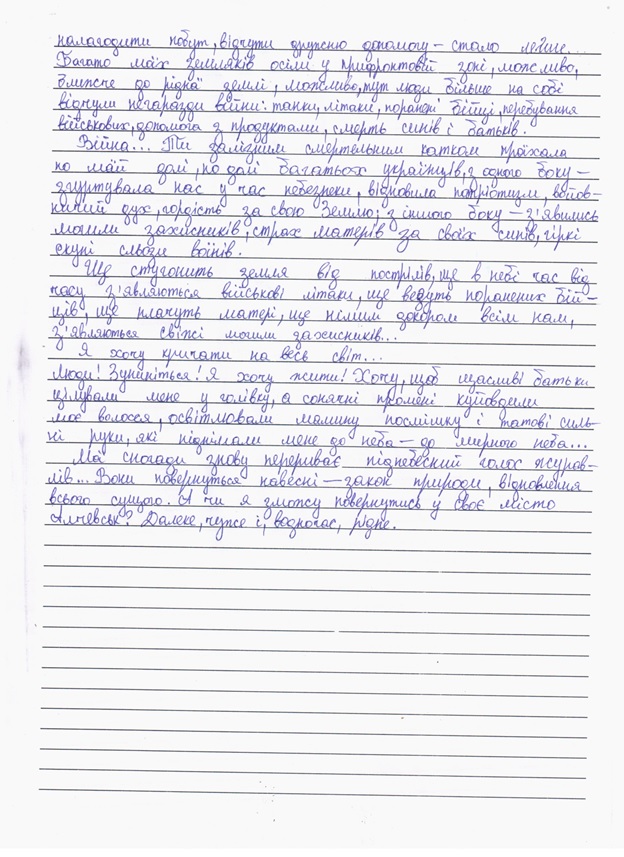 налагодити побут, відчути дружню допомогу – стало легше...
Багато моїх земляків осіли у прифронтовій зоні, можливо,
ближче до рідної землі, можливо, тут люди більше на собі
відчули негаразди війни: танки, літаки, поранені бійці, перебування
військових, допомога з продуктами, смерть синів і батьків.
Війна... Ти залізним смертельним катком проїхала
по моїй долі, по долі багатьох українців, з одного боку –
згуртувала нас у час небезпеки, відновила патріотизм, войов-
ничий дух, гордість за свою Землю; з іншого боку – з'явились
могили захисників, страх матерів за своїх синів, гіркі
скупі сльози воїнів.
Ще стугонить земля від пострілів, ще в небі час від
часу з'являються військові літаки, ще везуть поранених бій-
ців, ще плачуть матері, ще німим докором всім нам,
з'являються свіжі могили захисників...
Я хочу кричати на весь світ...
Люди! Зупиніться! Я хочу жити! Хочу, щоб щасливі батьки
цілували мене у голівку, а сонячні промені куйовдили
моє волосся, освітлювали мамину посмішку і татові силь-
ні руки, які піднімали мене до неба – до мирного неба...
Мої спогади знову перериває піднебесний голос журав-
лів... Вони повернуться навесні – закон природи, відновлення
всього сущого. А чи я зможу повернутись у своє місто
Алчевськ? Далеке, чуже і, водночас, рідне.